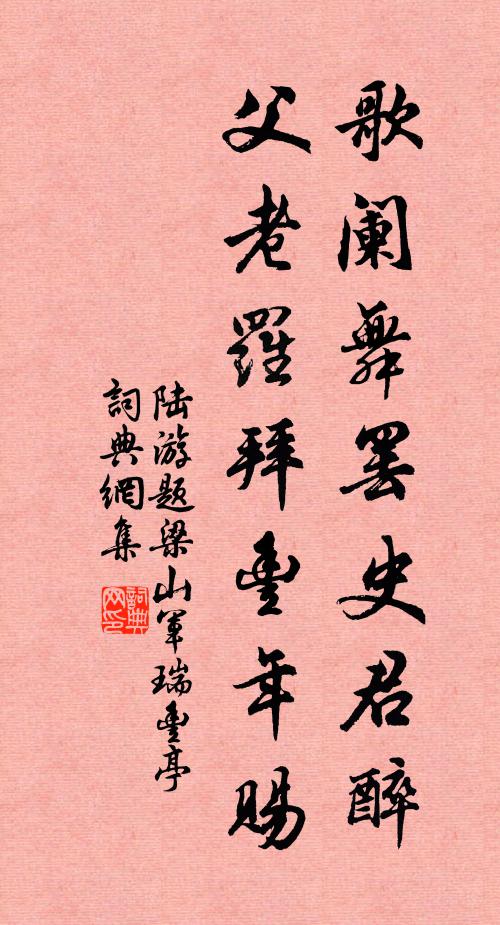 歌阑舞罢史君醉
父老羅拜豊年賜
陆游题梁山军瑞豊亭
詞典網集
詞典网印